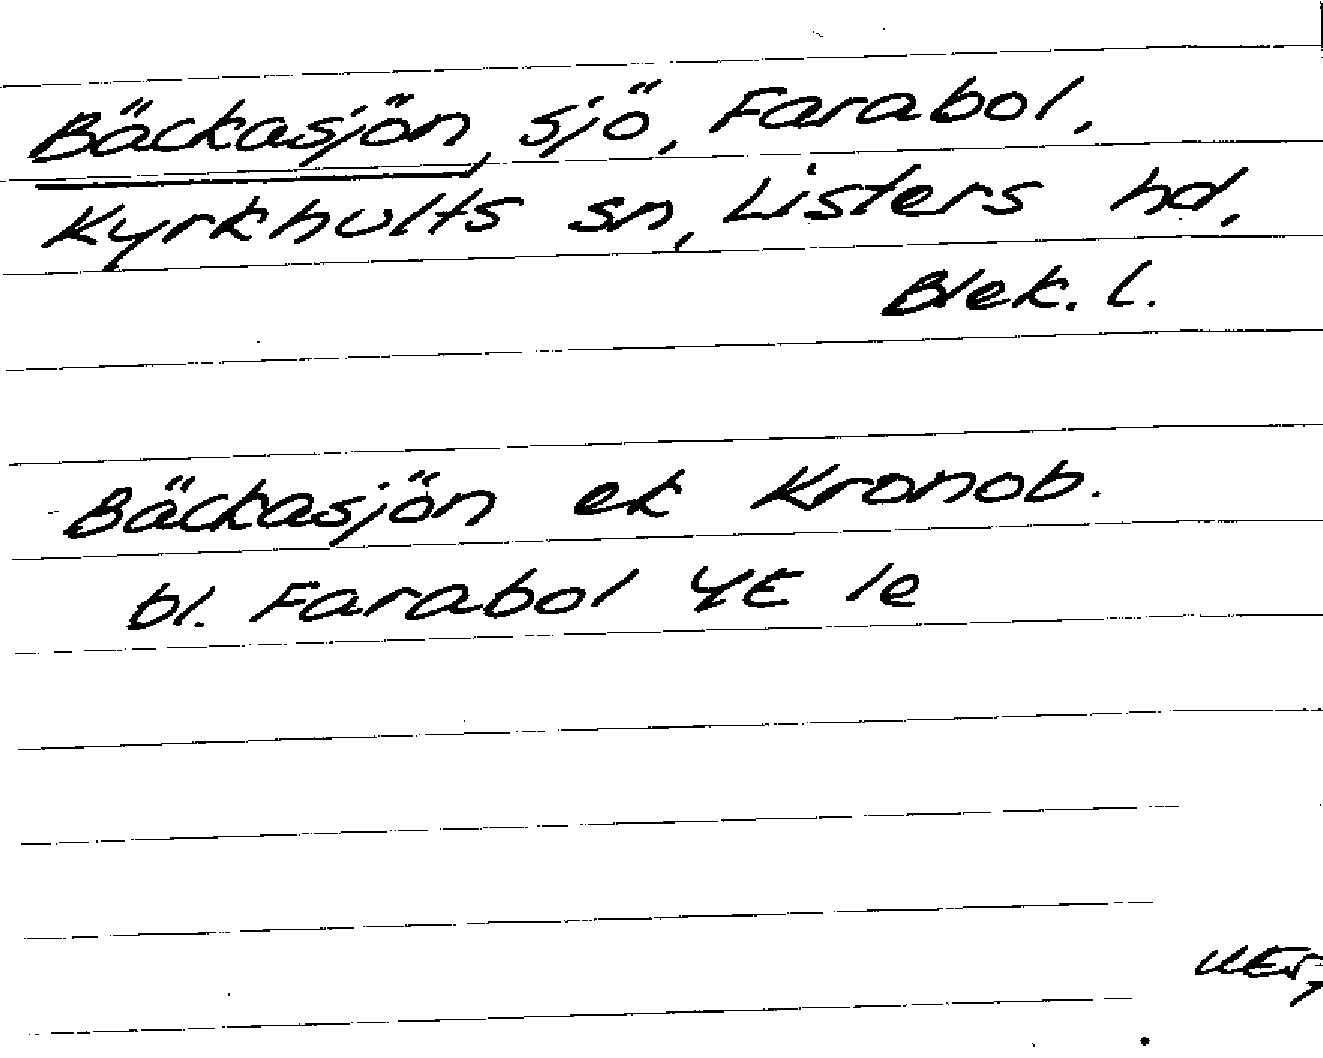 Bäckasjön, sjö, Farabol,
Kyrkhults sn, Listers hd,
Blek. l.
Bäckasjön ek Kronob.
bl. Farabol 4E le